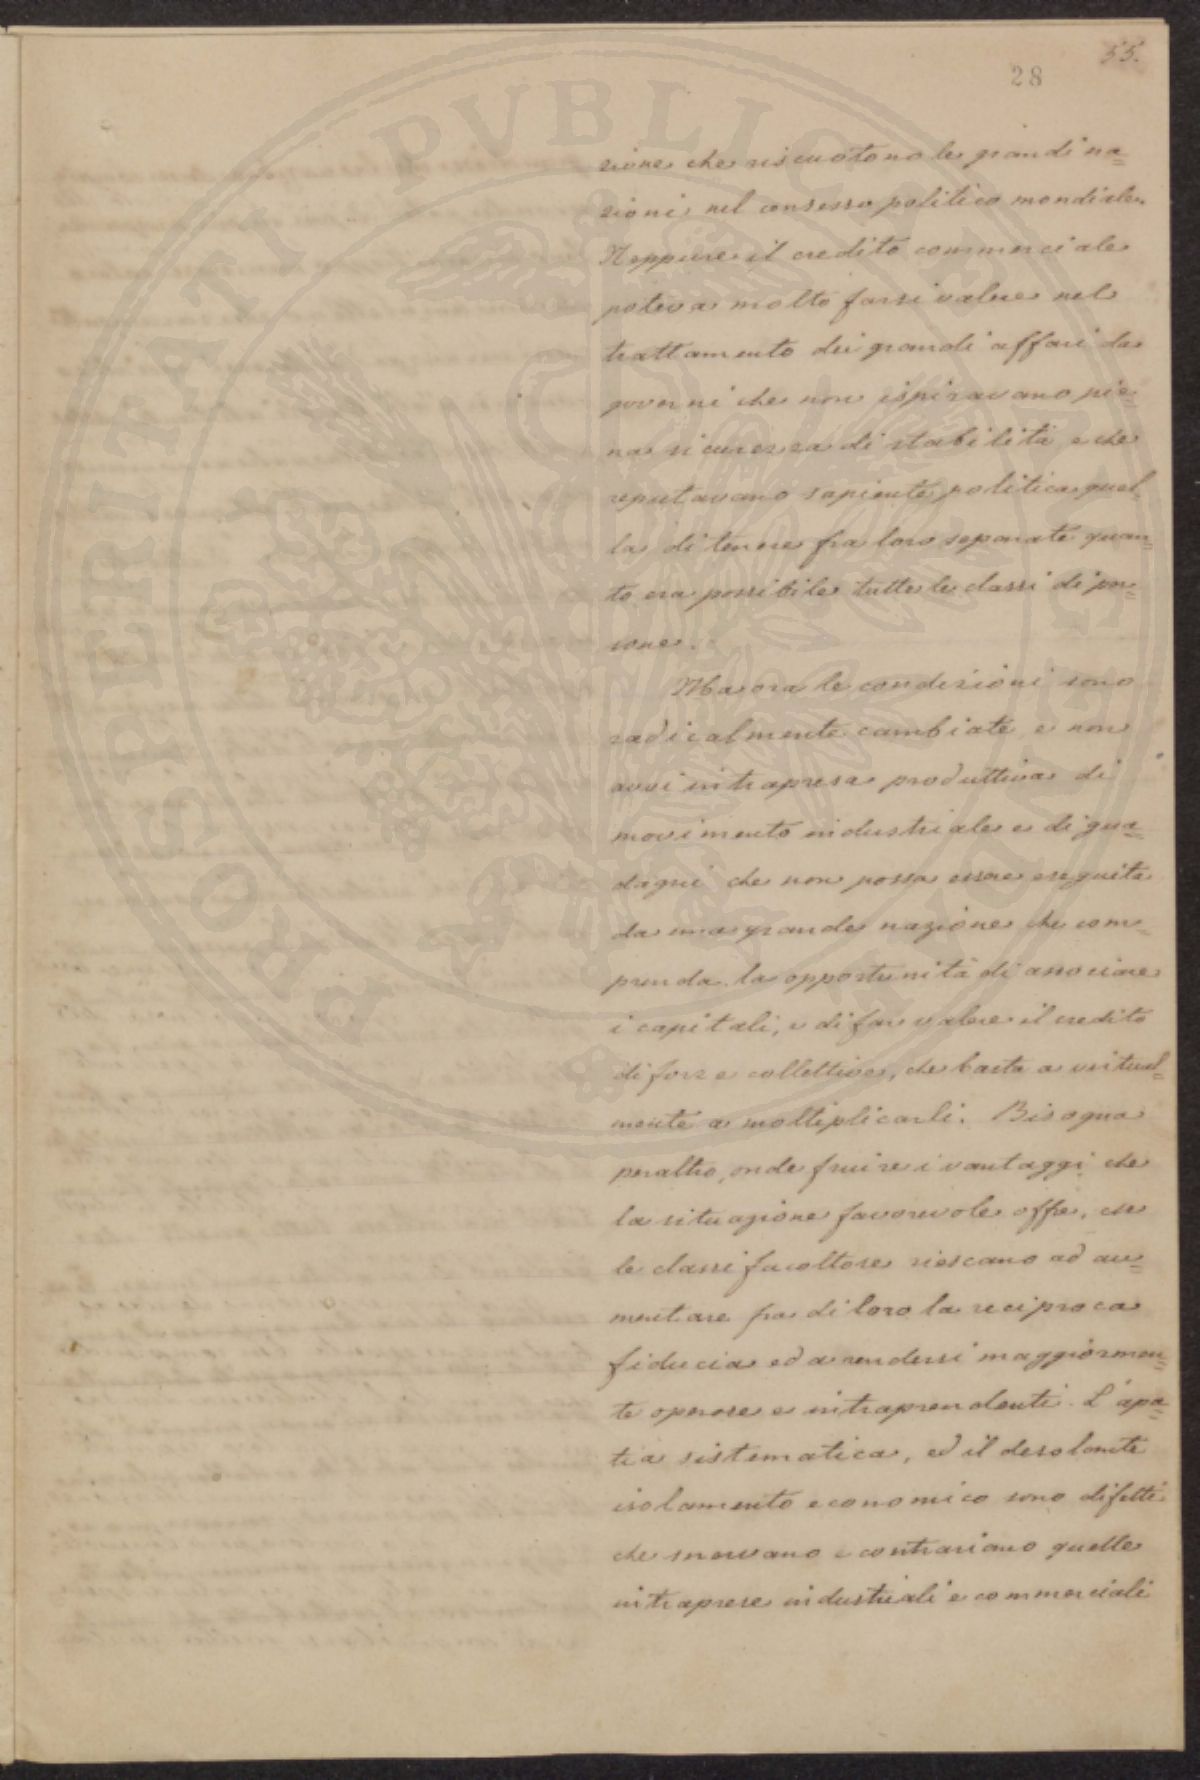 55.
28
PROSPERITATI PVBLICAE AVGENDAE
zione che riscuotono le grandi na=
zioni nel consesso politico mondiale.
Neppure il credito commerciale
poteva molto farsi valere nel
trattamento dei grandi affari da
governi che non ispiravano pie=
na sicurezza di stabilità e che
reputavano sapiente politica quel=
la di tenere fra loro separate quan=
to era possibile tutte le classi di per=
sone.
Ma ora le condizioni sono
radicalmente cambiate e non
avvi intrapresa produttiva di
movimento industriale e di gua=
dagni che non possa essere eseguita
da una grande nazione che com=
prenda la opportunità di associare
i capitali, e di far valere il credito
di forze collettive, che basta a virtual=
mente a moltiplicarli. Bisogna
peraltro, onde fruire i vantaggi che
la situazione favorevole offre, che
le classi facoltose riescano ad au=
mentare fra di loro la reciproca
fiducia ed a rendersi maggiormen=
te operose e intraprendenti. L'apa=
tia sistematica, ed il desolante
isolamento economico sono difetti
che snervano e contrariano quelle
intraprese industriali e commerciali